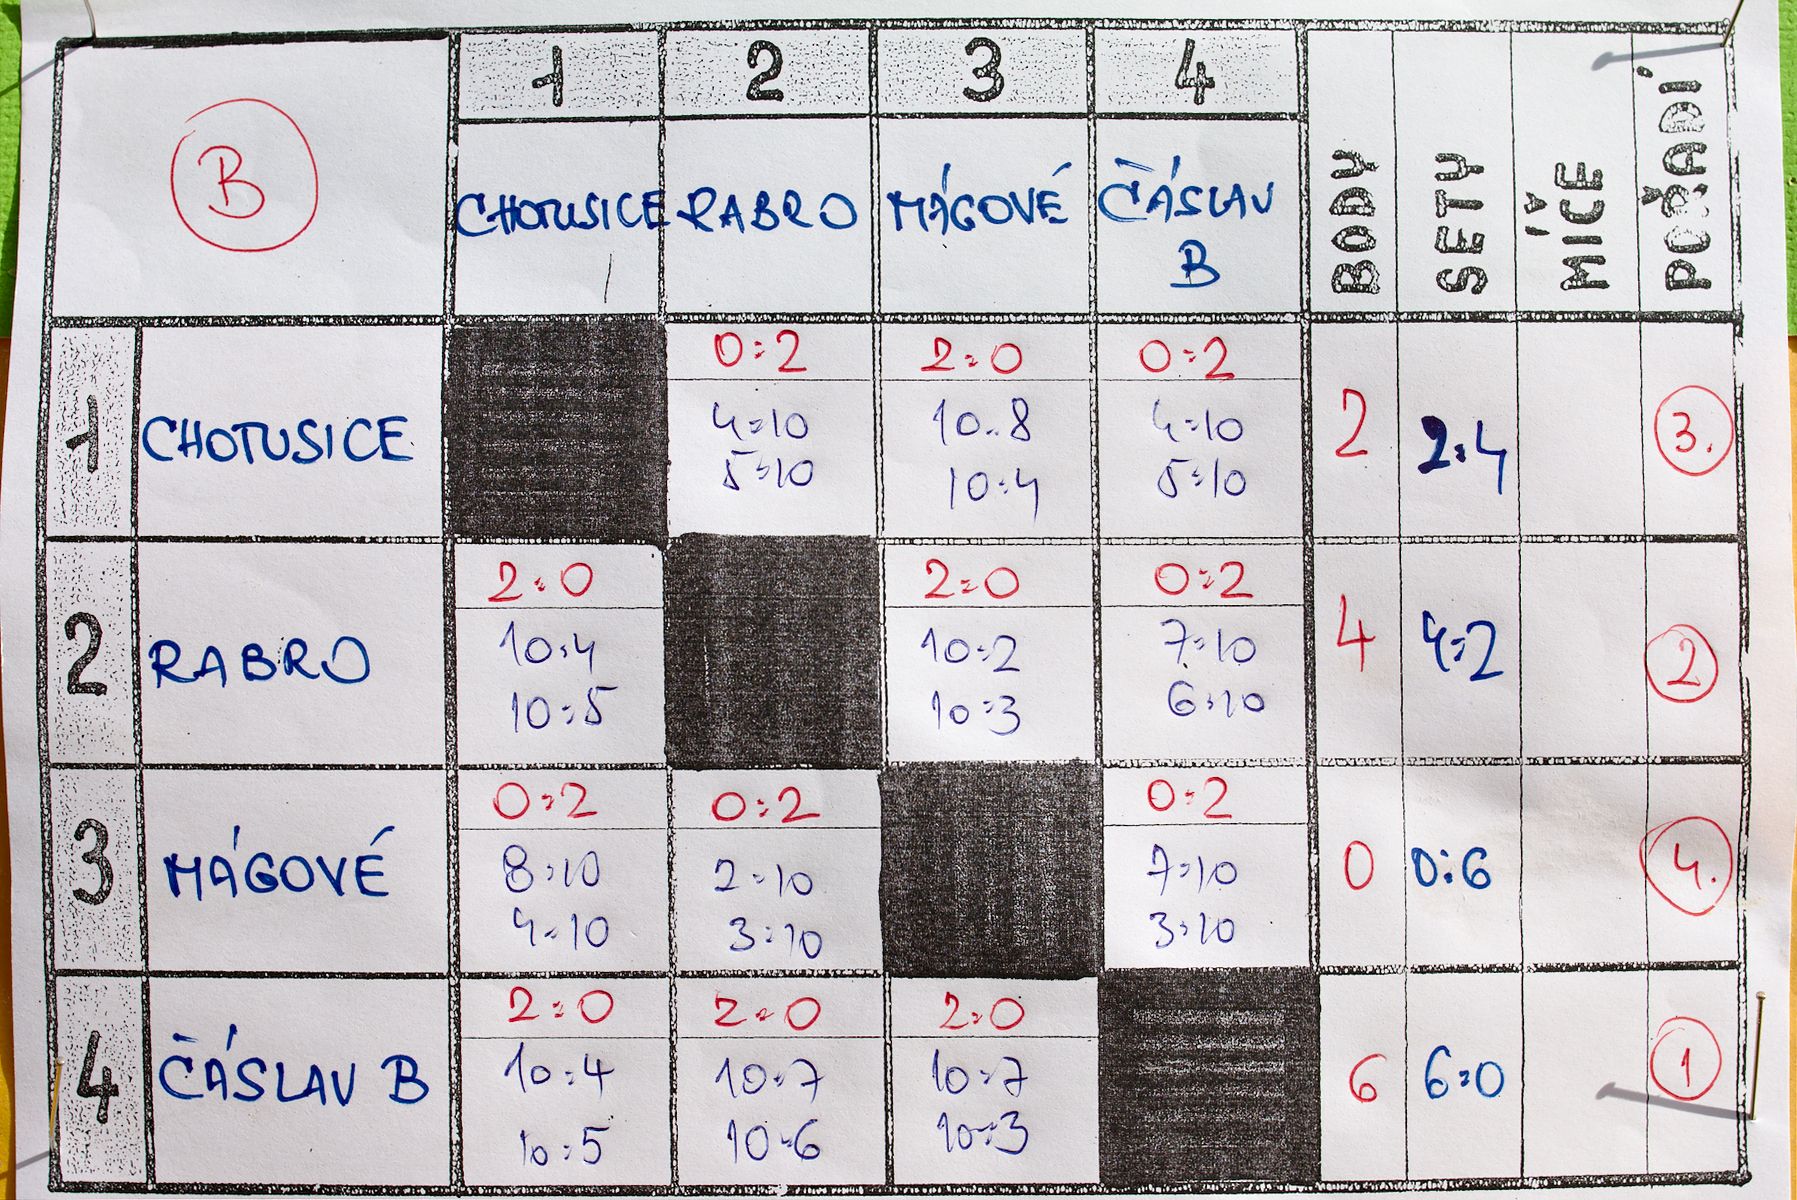 B
1 2 3 4
CHOTUSICE RABRO MÁGOVÉ ČÁSLAV B
BODY SETY MÍČE POŘADÍ
1 CHOTUSICE
0:2 2:0 0:2
4:10 10:8 4:10
5:10 10:4 5:10
2 2:4 3.
2 RABRO
2:0 2:0 0:2
10:4 10:2 7:10
10:5 10:3 6:10
4 4:2 2.
3 MÁGOVÉ
0:2 0:2 0:2
8:10 2:10 7:10
4:10 3:10 3:10
0 0:6 4.
4 ČÁSLAV B
2:0 2:0 2:0
10:4 10:7 10:7
10:5 10:6 10:3
6 6:0 1